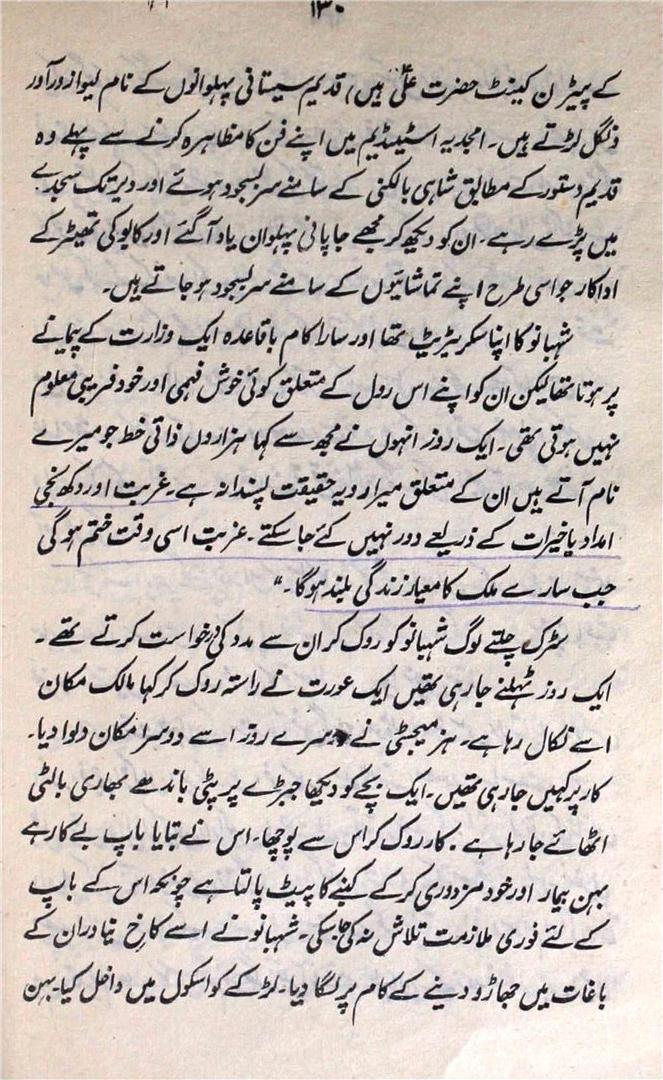 ۱۳۰
کے پیٹرن کینٹ حضرت علیؓ ہیں) قدیم سیستانی پہلوانوں کے نام لیوا زور آور
دنگل لڑتے ہیں۔ امجدیہ اسٹیڈیم میں اپنے فن کا مظاہرہ کرنے سے پہلے وہ
قدیم دستور کے مطابق شاہی بالکنی کے سامنے سربسجود ہوئے اور دیر تک سجدے
میں پڑے رہے۔ ان کو دیکھ کر مجھے جاپانی پہلوان یاد آ گئے اور کابوکی تھیٹر کے
اداکار جو اسی طرح اپنے تماشائیوں کے سامنے سربسجود ہو جاتے ہیں۔
شہبانو کا اپنا سکریٹریٹ تھا اور سارا کام باقاعدہ ایک وزارت کے پیمانے
پر ہوتا تھا لیکن ان کو اپنے اس رول کے متعلق کوئی خوش فہمی اور خود فریبی معلوم
نہیں ہوتی تھی۔ ایک روز انہوں نے مجھ سے کہا ہزاروں ذاتی خط جو میرے
نام آتے ہیں ان کے متعلق میرا رویہ حقیقت پسندانہ ہے۔ غربت اور دکھ نجی
امداد یا خیرات کے ذریعے دور نہیں کئے جا سکتے۔ غربت اسی وقت ختم ہو گی
جب سارے ملک کا معیار زندگی بلند ہو گا۔“
سڑک چلتے لوگ شہبانو کو روک کر ان سے مدد کی درخواست کرتے تھے۔
ایک روز ٹہلنے جا رہی تھیں ایک عورت نے راستہ روک کر کہا مالک مکان
اسے نکال رہا ہے۔ ہر میجسٹی نے دوسرے روز اسے دوسرا مکان دلوا دیا۔
کار پر کہیں جا رہی تھیں۔ ایک بچے کو دیکھا جبڑے پر پٹی باندھے بھاری بالٹی
اٹھائے جا رہا ہے۔ کار روک کر اس سے پوچھا۔ اس نے بتایا باپ بے کار ہے
بہن بیمار اور خود مزدوری کر کے کنبے کا پیٹ پالتا ہے چونکہ اس کے باپ
کے لئے فوری ملازمت تلاش نہ کی جا سکی۔ شہبانو نے اسے کاخ نیاوران کے
باغات میں جھاڑو دینے کے کام پر لگا دیا۔ لڑکے کو اسکول میں داخل کیا۔ بہن